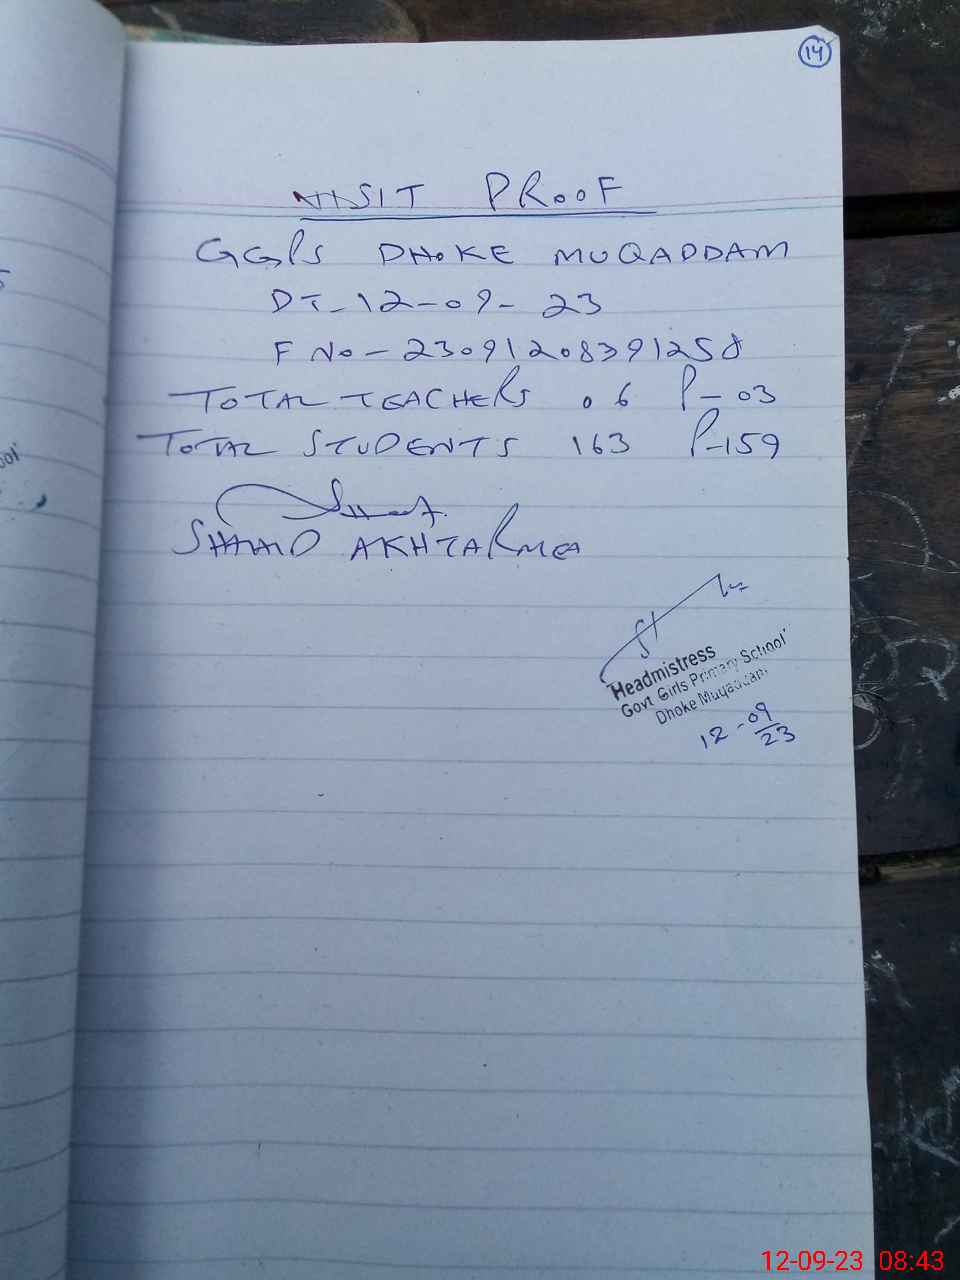 14
VISIT PROOF
GGPS DHOKE MUQADDAM
DT-12-09-23
F No-23091208391258
TOTAL TEACHERS 06 P-03
TOTAL STUDENTS 163 P-159
AKHTAR MEA
Headmistress
Govt Girls Primary School
Dhoke Muqaddam
12-09/23
12-09-23 08:43